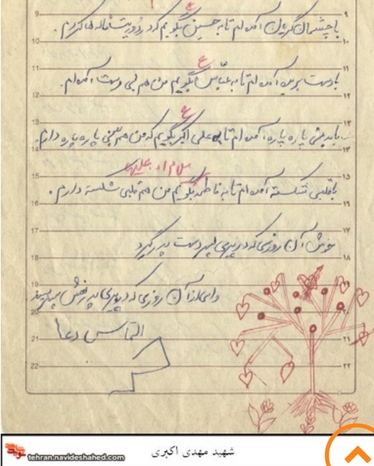 با چشمان گریان آمده‌ام تا به حسین بگویم که
ع
با دست بریده آمده‌ام تا به عباس بگویم من هم بی دست آمده‌ام.
ع
با بدنی پاره پاره آمده‌ام تا به علی اکبر بگویم که من هم بدنی پاره پاره دارم.
ع
سلام اله علیها
با قلبی شکسته آمده‌ام تا به فاطمه بگویم من هم قلبی شکسته دارم.
خوش آن روزی که در پیری پسر دست پدر گیرد
وای از آن روزی که در پیری پدر نعش پسر بیند
التماس دعا
9
10
11
12
13
14
15
16
17
18
19
20
21
22
شهید مهدی اکبری
tehran.navideshahed.com